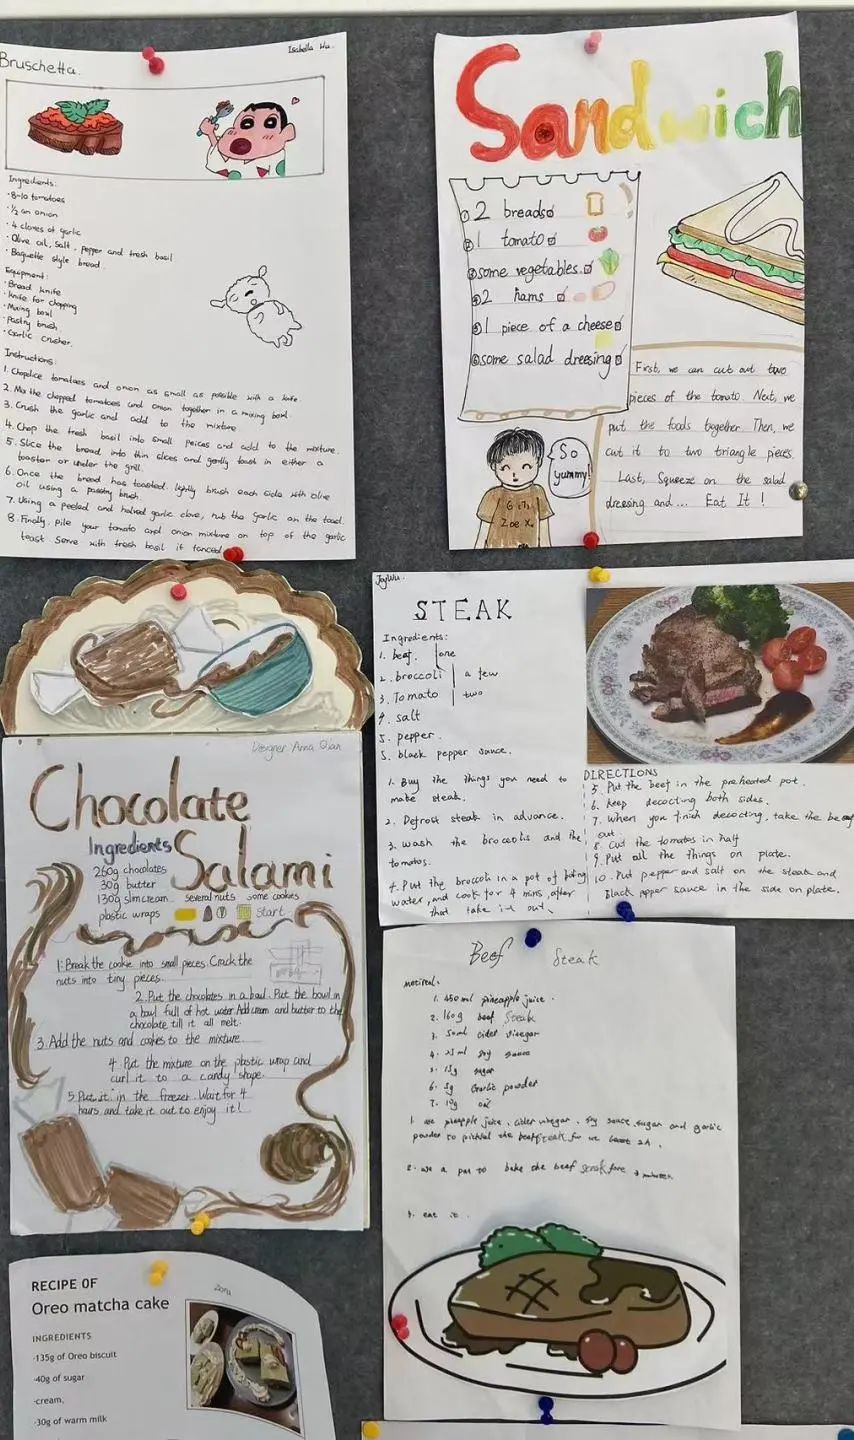 Bruschetta.
Isabella Wu.
Ingredients:
·8-10 tomatoes
·1/2 an onion
·4 cloves of garlic
·Olive oil, salt, pepper and fresh basil
·Baguette style bread.
Equipment:
·Bread knife
·knife for chopping
·Mixing bowl
·Pastry brush
·Garlic crusher.
Instructions:
1. Chop/dice tomatoes and onion as small as possible with a knife
2. Mix the chopped tomatoes and onion together in a mixing bowl.
3. Crush the garlic and add to the mixture.
4. Chop the fresh basil into small peices and add to the mixture.
5. Slice the bread into thin slices and gently toast in either a
toaster or under the grill.
6. Once the bread has toasted, lightly brush each side with olive
oil using a pastry brush.
7. Using a peeled and halved garlic clove, rub the garlic on the toast.
8. Finally, pile your tomato and onion mixture on top of the garlic
toast. Serve with fresh basil if fancied
Sandwich
① 2 breads
② 1 tomato
③ some vegetables
④ 2 hams
⑤ 1 piece of a cheese
⑥ some salad dressing
First, we can cut out two
pieces of the tomato. Next, we
put the foods together. Then, we
cut it to two triangle pieces.
Last, Squeeze on the salad
dressing and... Eat It !
So
yummy!
Zoe X.
Designer Anna Qian
Chocolate
Salami
Ingredients
260g chocolates
30g butter
130g slim cream several nuts some cookies
plastic wraps
start
1. Break the cookie into small pieces. Crack the
nuts into tiny pieces.
2. Put the chocolates in a bowl. Put the bowl in
a bowl full of hot water. Add cream and butter to the
chocolate till it all melt.
3. Add the nuts and cookies to the mixture.
4. Put the mixture on the plastic wrap and
curl it to a candy shape.
5. Put it in the freezer. Wait for 4
hours and take it out to enjoy it!
Joy Wu.
STEAK
Ingredients:
1. beef. one
2. broccoli a few
3. Tomato two
4. salt
5. pepper.
5. black pepper sauce.
1. Buy the things you need to
make steak.
2. Defrost steak in advance.
3. wash the broccolis and the
tomatos.
4. Put the broccoli in a pot of boiling
water, and cook for 4 mins, after
that take it out.
DIRECTIONS
5. Put the beef in the preheated pot.
6. keep decocting both sides.
7. When you finish decocting, take the beef
out.
8. Cut the tomatos in half
9. Put all the things on plate.
10. Put pepper and salt on the steak and
black pepper sauce in the side on plate.
Beef Steak
1. 450ml pineapple juice.
2. 160g beef steak
3. 50ml cider vinegar
4. 25ml soy sauce
5. 15g sugar
6. 5g Garlic powder
7. 10g oil
1. use pineapple juice, cider vinegar, soy sauce, sugar and garlic
powder to pickled the beef steak for
2. use a pan to bake the beef steak
3. eat it.
RECIPE OF
Oreo matcha cake
INGREDIENTS
·135g of Oreo biscuit
·40g of sugar
·cream,
·30g of warm milk